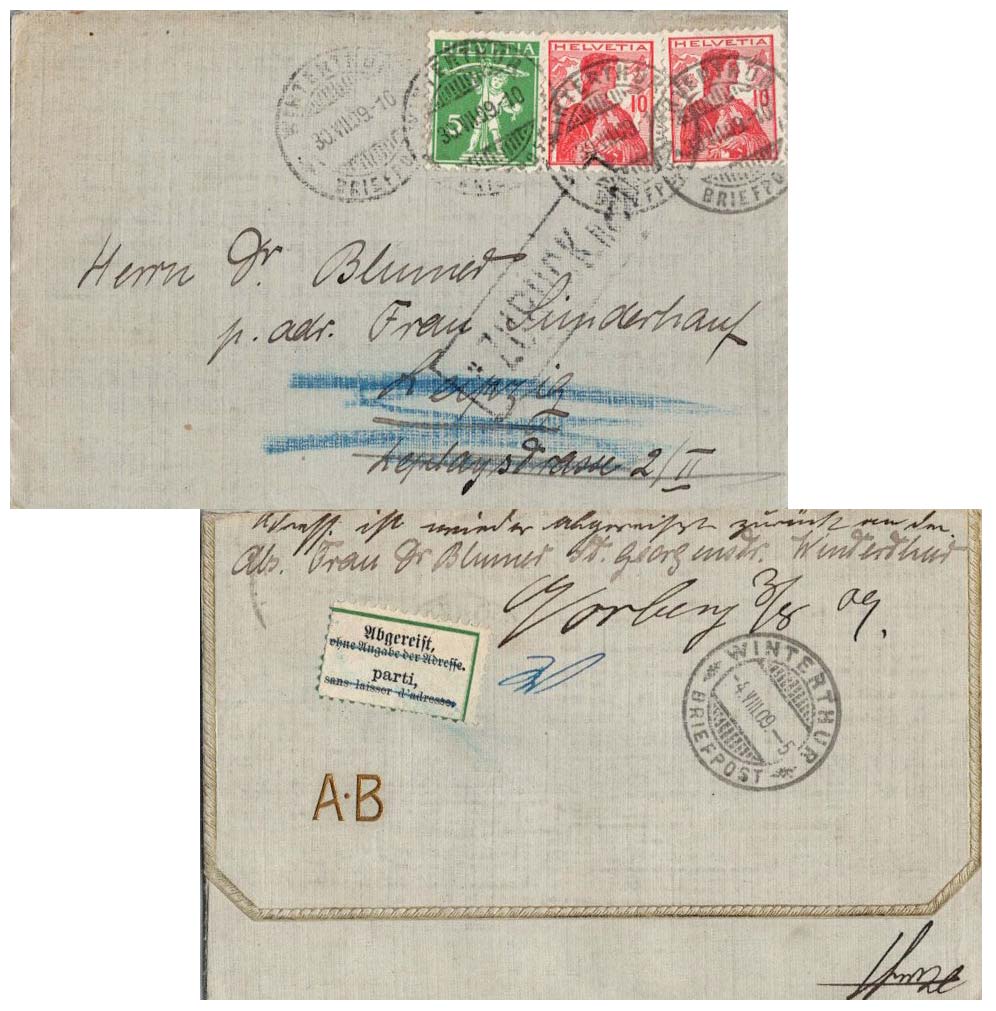 HELVETIA HELVETIA HELVETIA
5 10 10
WINTERTHUR 30.VII.09.-10 BRIEFPO
30.VII.09.-10
BRIEFPO
ZURÜCK
Herrn Dr. Blumer
p. adr. Frau Sünderhauf
Leipzig
2/II
Adress. ist wieder abgereist zurück an den
Abs. Frau Dr Blumer St. Georgenstr. Winterthur
3/8 09.
Abgereist,
ohne Angabe der Adresse.
parti,
sans laisser d'adresse.
WINTERTHUR
-4.VIII.09.-5
BRIEFPOST
A·B